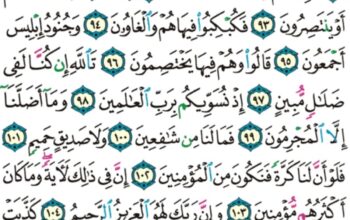 أَوْ يَنتَصِرُونَ ٩٣ فَكُبْكِبُوا۟ فِيهَا هُمْ وَٱلْغَاوُۥنَ ٩٤ وَجُنُودُ إِبْلِيسَ
أَجْمَعُونَ ٩٥ قَالُوا۟ وَهُمْ فِيهَا يَخْتَصِمُونَ ٩٦ تَٱللَّهِ إِن كُنَّا لَفِى
ضَلَـٰلٍ مُّبِينٍ ٩٧ إِذْ نُسَوِّيكُم بِرَبِّ ٱلْعَـٰلَمِينَ ٩٨ وَمَآ أَضَلَّنَآ
إِلَّا ٱلْمُجْرِمُونَ ٩٩ فَمَا لَنَا مِن شَـٰفِعِينَ ١٠٠ وَلَا صَدِيقٍ حَمِيمٍ ١٠١
فَلَوْ أَنَّ لَنَا كَرَّةً فَنَكُونَ مِنَ ٱلْمُؤْمِنِينَ ١٠٢ إِنَّ فِى ذَٰلِكَ لَـَٔايَةً وَمَا كَانَ
أَكْثَرُهُم مُّؤْمِنِينَ ١٠٣ وَإِنَّ رَبَّكَ لَهُوَ ٱلْعَزِيزُ ٱلرَّحِيمُ ١٠٤ كَذَّبَتْ